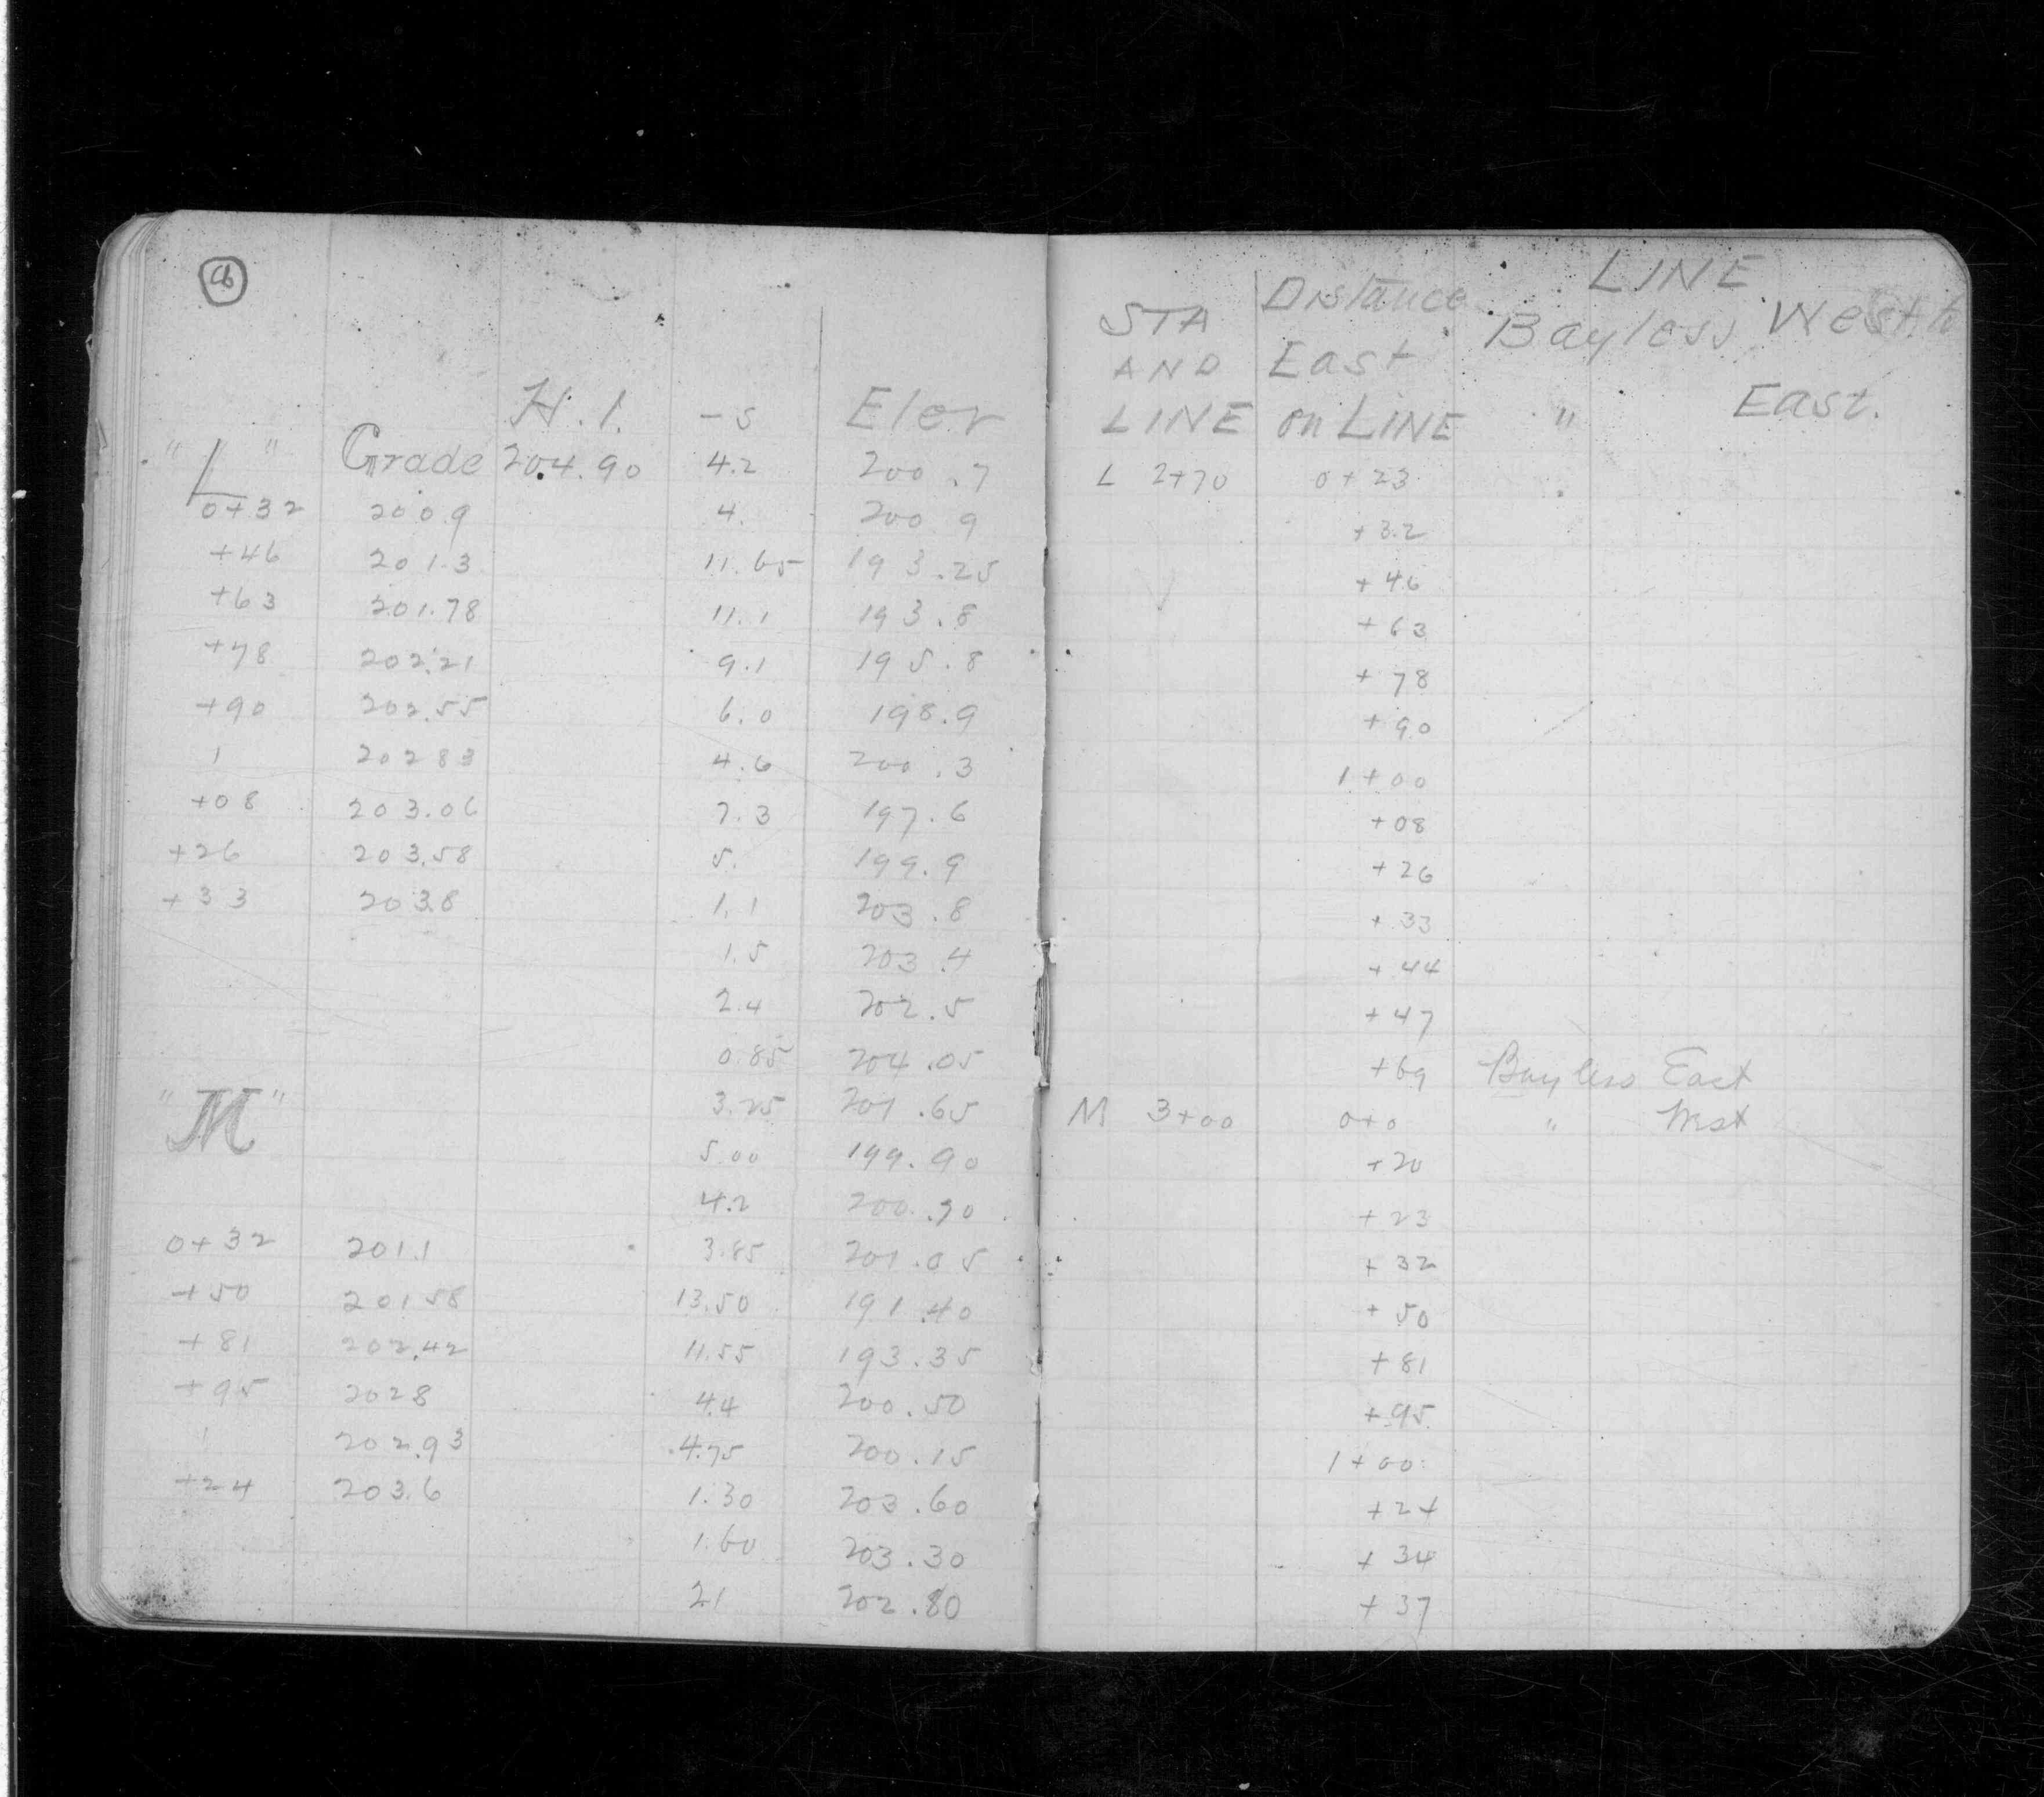 H.I. -S Elev
"L" Grade 204.90 4.2 200.7
0+32 200.9 4. 200 9
+46 201.3 11.65 193.25
+63 201.78 11.1 193.8
+78 202.21 9.1 195.8
+90 202.55 6.0 198.9
1 202 83 4.6 200.3
+08 203.06 7.3 197.6
+26 203.58 5. 199.9
+33 203.8 1.1 203.8
1.5 203.4
2.4 202.5
0.85 204.05
"M" 3.25 201.65
5.00 199.90
4.2 200.70
0+32 201.1 3.85 201.05
+50 201 58 13.50 191.40
+81 202.42 11.55 193.35
+95 202 8 4.4 200.50
1 202.93 4.75 200.15
+24 203.6 1.30 203.60
1.60 203.30
2.1 202.80
STA Distance LINE
AND East Bayless West
LINE on LINE " East.
L 2+70 0+23
+32
+46
+63
+78
+90
1+00
+08
+26
+33
+44
+47
+69 Bayless East
M 3+00 0+0 " West
+20
+23
+32
+50
+81
+95
1+00
+24
+34
+37